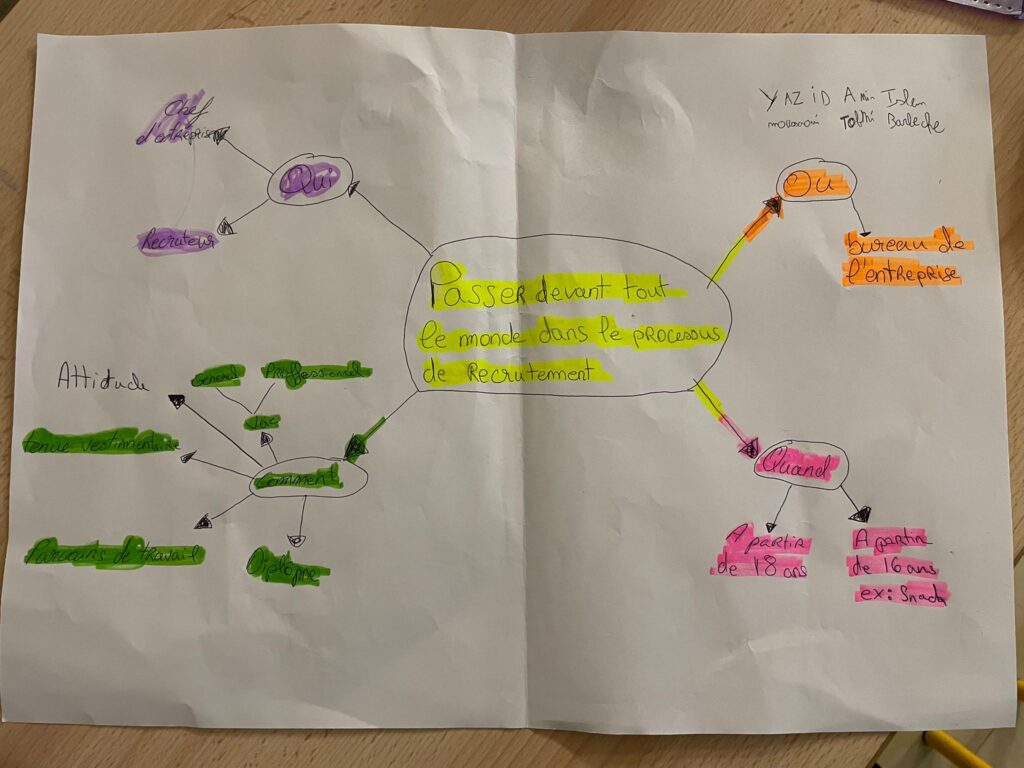 YAZiD Amin Islem
Barleche
Chef
d'entreprise
Qui
Recruteur
OU
bureau de
l'entreprise
Passer devant tout
le monde dans le processus
de Recrutement
Attitude
General
Proffessionnel
tenue vestimentaire
Comment
Parcours de travail
Diplôme
Quand
A partir
de 18 ans
A partir
de 16 ans
ex: Snack